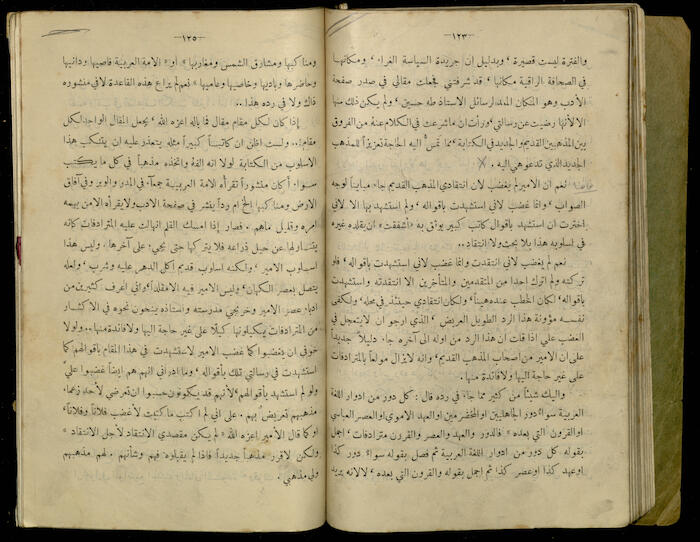 —١٢٣—
والفترة ليست قصيرة ، وبدليل ان جريدة السياسة الغراء ، ومكانتها
في الصحافة الراقية مكانتها ، قد شرفتني فجعلت مقالي في صدر صفحة
الأدب وهو المكان المعد لرسائل الاستاذ طه حسين ، ولم يكن ذلك منها
الا لأنها رضيت عن رسالتي ، ورأت ان ما شرعت في الكلام عنه من الفروق
بين المذهبين القديم والجديد في الكتابة ، مما تمس اليه الحاجة تعزيزاً للمذهب
الجديد الذي تدعو هي اليه .
نعم ان الامير لم يغضب لان انتقادي المذهب القديم جاء مبايناً لوجه
الصواب ، وانما غضب لاني استشهدت باقواله ، ولم استشهد بها الا لاني
اخترت ان استشهد باقوال كاتب كبير يوثق به « أشفقت » ان يقلده غيره
في اسلوبه هذا بلا بحث ولا انتقاد ..
نعم لم يغضب لاني انتقدت وانما غضب لاني استشهدت باقواله ، فلو
تركته ولم اترك احداً من المتقدمين والمتأخرين الا انتقدته واستشهدت
باقواله ، لكان الخطب عنده هيناً ، ولكان انتقادي حينئذ في محله ، ولكفى
نفسه مؤونة هذا الرد الطويل العريض ، الذي ارجو ان لا يتعجل في
الغضب علي اذا قلت ان هذا الرد من اوله الى آخره جاء دليلاً جديداً
على ان الامير من أصحاب المذهب القديم ، وانه لا يزال مولعاً بالمترادفات
على غير حاجة اليها ولا فائدة منها .
واليك شيئاً من كثير مما جاء في رده قال : كل دور من ادوار اللغة
العربية سواء دور الجاهليين او المخضرمين او العهد الاموي او العصر العباسي
او القرون التي بعده » فالدور والعهد والعصر والقرون مترادفات ، اجمل
بقوله كل دور من ادوار اللغة العربية ثم فصل بقوله سواء دور كذا
او عهد كذا او عصر كذا ثم اجمل بقوله والقرون التي بعده ، لا لانه يريد
—١٢٥—
ومناكبها ومشارق الشمس ومغاربها » او « الامة العربية قاصيها ودانيها
وحاضرها وباديها وخاصيها وعاميها » نعم لم يراع هذه القاعدة لا في منشوره
ذاك ولا في رده هذا ..
إذا كان لكل مقام مقال فما باله اعزه الله ، يجعل المقال الواحد لكل
مقام ؛ .. ولست اظن ان كاتبـاً كبيراً مثله يتعذر عليه ان يتنكب هذا
الاسلوب من الكتابة لولا انه الفه واتخذه مذهباً في كل ما يكتب
سواء أكان منشوراً تقرأه الامة العربية جمعاً في المدر والوبر وفي آفاق
الارض ومناكبها ام رداً ينشر في صفحة الادب ولا يقرأه الا من يهمه
امره وقليل ماهم . فصار إذا امسك القلم انهالت عليه المترادفات كانه
يتناولها عن حبل ذراعه فلا يتركها حتى يجيء على آخرها ، وليس هذا
اسلوب الامير ، ولكنه اسلوب قديم اكل الدهر عليه وشرب ، ولعله
يتصل بعصر الكهان ، وليس الامير فيه الا مقلداً ، واني اعرف كثيرين من
ادباء عصر الامير وخريجي مدرسته واستاذه ينحون نحوه في الاكثار
من المترادفات يكيلونها كيلاً على غير حاجة اليها ولا فائدة منها .. ولولا
خوفي ان يغضبوا كما غضب الامير لاستشهدت في هذا المقام باقوالهم كما
استشهدت في رسالتي تلك باقواله ، وما ادراني انهم هم ايضاً غضبوا عليّ
ولو لم استشهد باقوالهم ، لأنهم قد يكونون حسبوا ان تعرضي لأحد زعماء
مذهبهم تعريض بهم . على اني لم اكتب ما كتبت لأغضب فلاناً وفلاناً ،
او كما قال الأمير اعزه الله « لم يكن مقصدي الانتقاد لأجل الانتقاد »
ولكن لاقرر مذهباً جديداً فاذا لم يقبلوه فهم وشأنهم . لهم مذهبهم
ولي مذهبي .